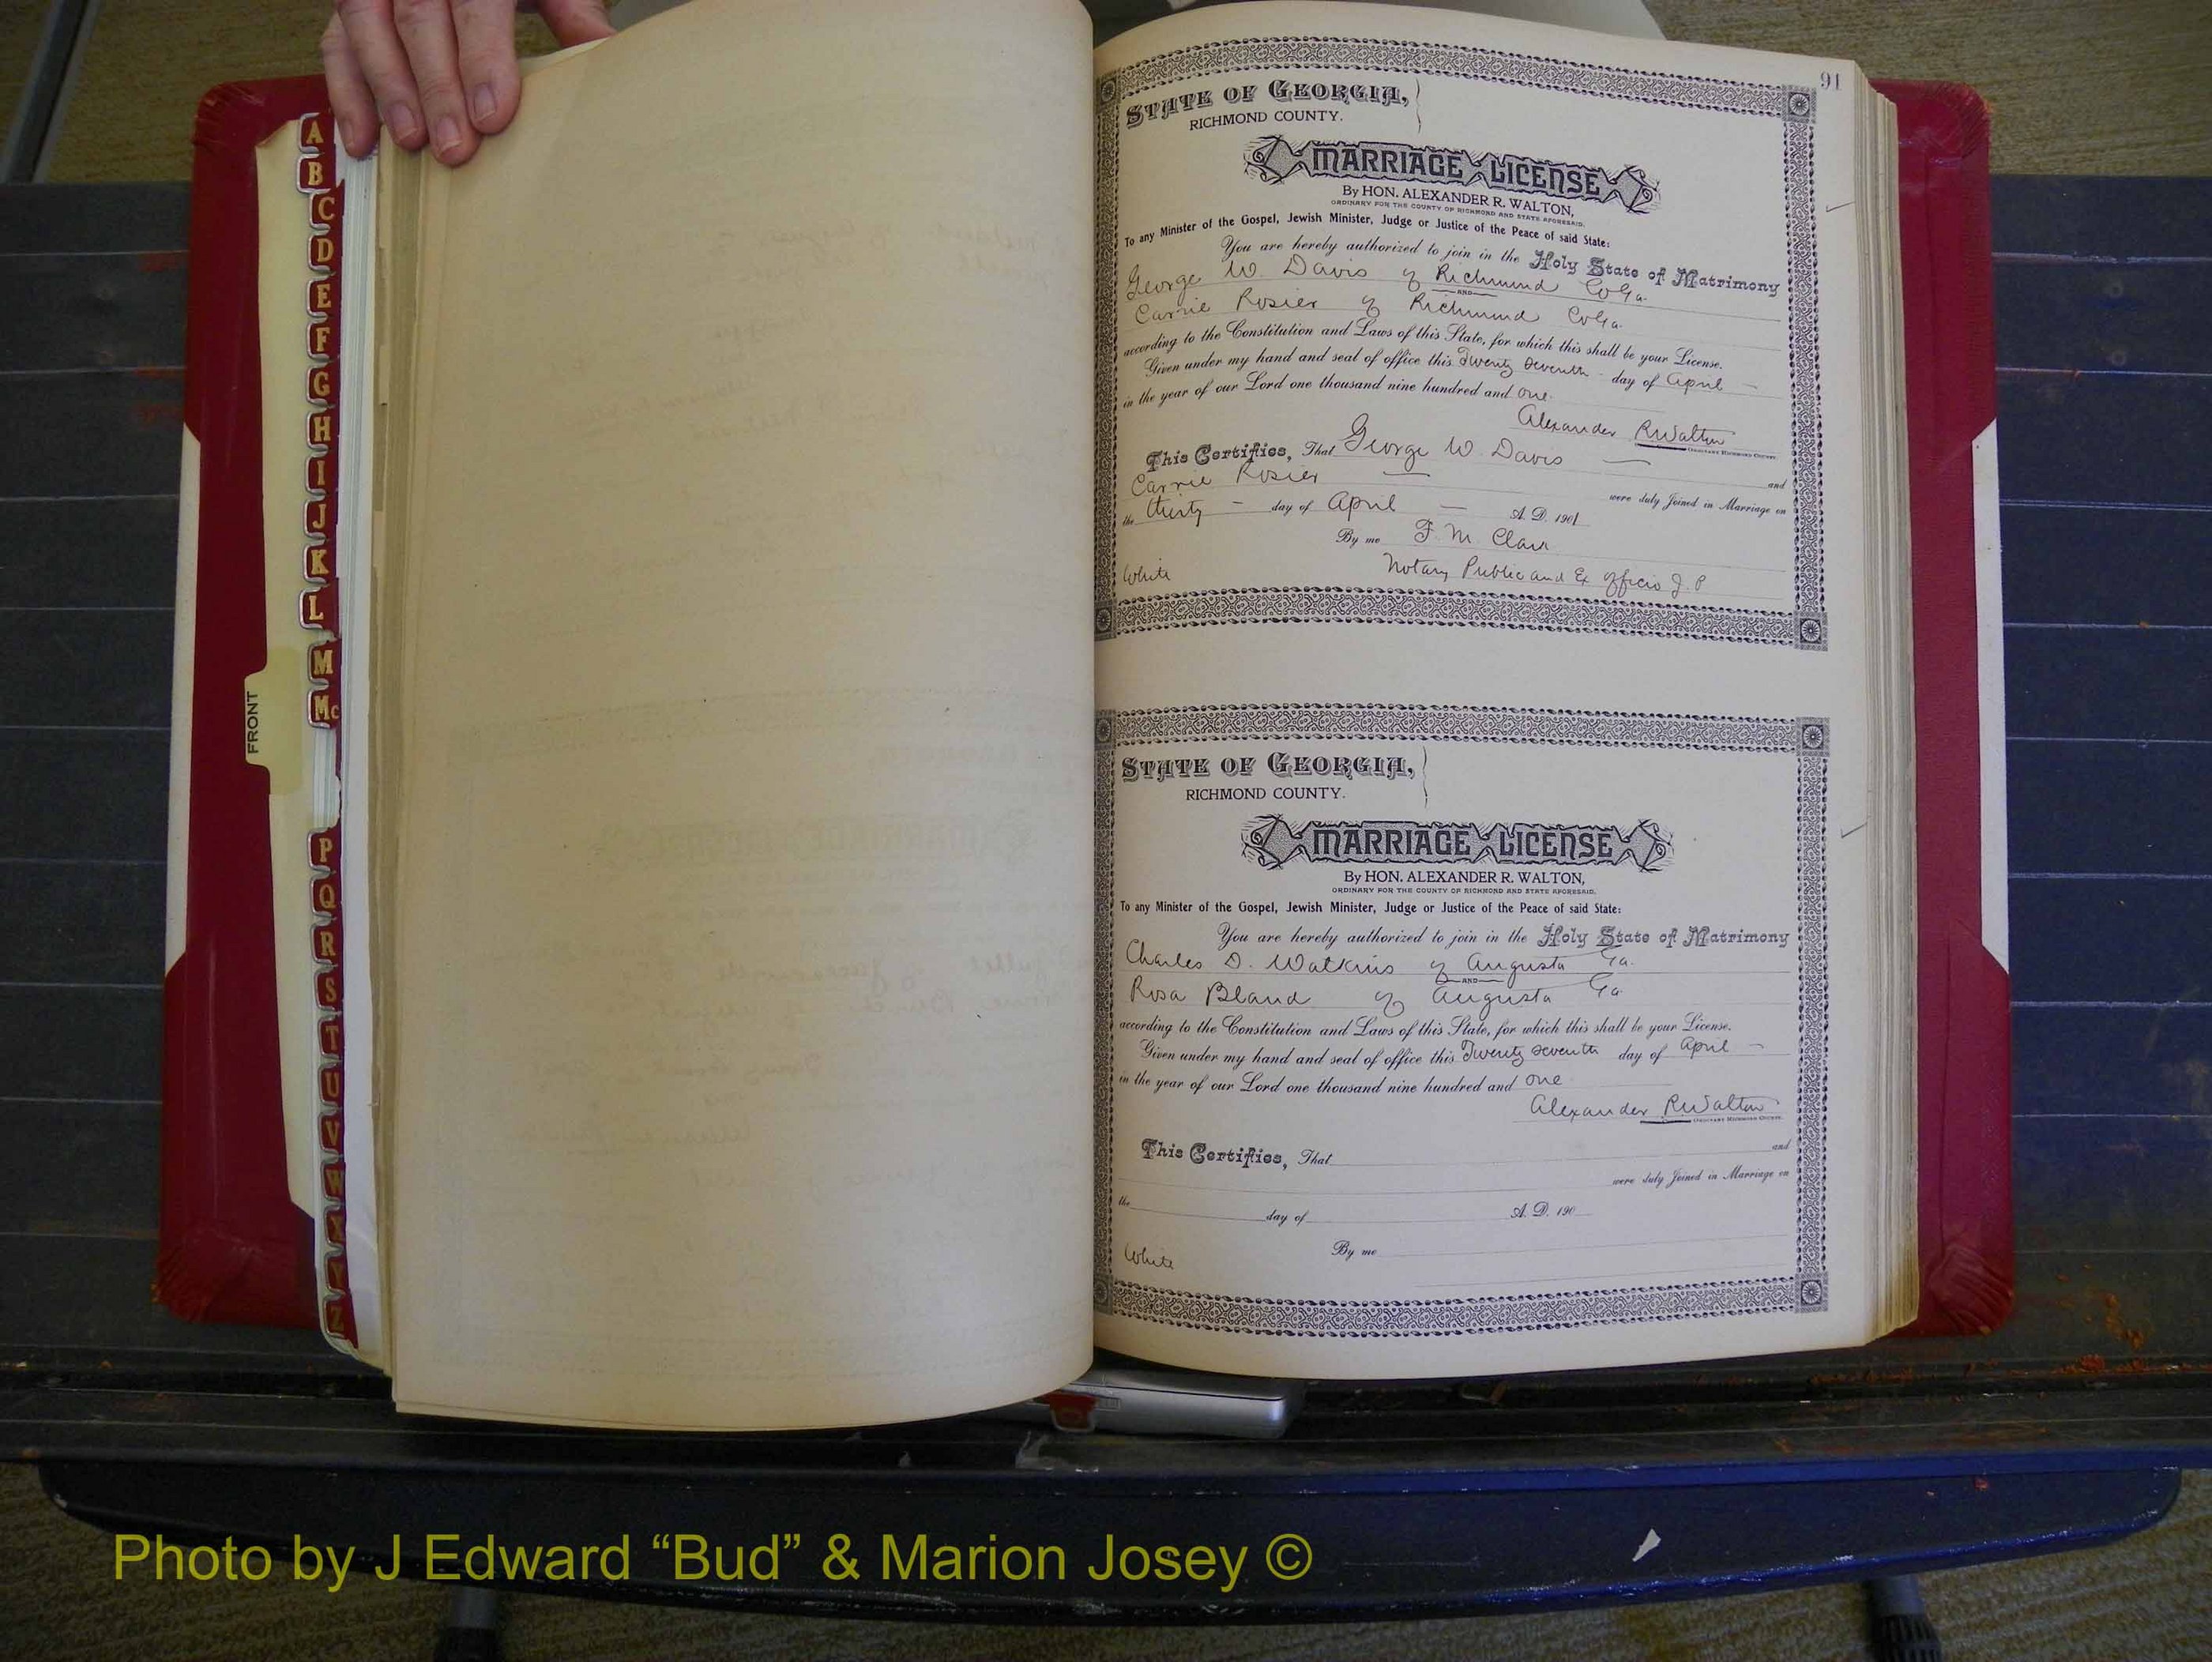 A
B
C
D
E
F
G
H
I
J
K
L
M
Mc
FRONT
P
Q
R
S
T
U
V
W
X
Y
Z
91
STATE OF GEORGIA,
RICHMOND COUNTY.
MARRIAGE LICENSE
By HON. ALEXANDER R. WALTON,
ORDINARY FOR THE COUNTY OF RICHMOND AND STATE AFORESAID.
To any Minister of the Gospel, Jewish Minister, Judge or Justice of the Peace of said State:
You are hereby authorized to join in the Holy State of Matrimony
George W. Davis of Richmond Co Ga.
AND
Carrie Rosier of Richmond Co Ga.
according to the Constitution and Laws of this State, for which this shall be your License.
Given under my hand and seal of office this Twenty seventh day of April
in the year of our Lord one thousand nine hundred and one.
Alexander R Walton
ORDINARY RICHMOND COUNTY.
This Certifies, That George W. Davis
and
Carrie Rosier were duly Joined in Marriage on
the thirty day of April A. D. 1901
By me F. M. Clark
Notary Public and Ex officio J. P
White
STATE OF GEORGIA,
RICHMOND COUNTY.
MARRIAGE LICENSE
By HON. ALEXANDER R. WALTON,
ORDINARY FOR THE COUNTY OF RICHMOND AND STATE AFORESAID.
To any Minister of the Gospel, Jewish Minister, Judge or Justice of the Peace of said State:
You are hereby authorized to join in the Holy State of Matrimony
Charles D. Watkins of Augusta Ga.
AND
Rosa Bland of Augusta Ga
according to the Constitution and Laws of this State, for which this shall be your License.
Given under my hand and seal of office this Twenty seventh day of April
in the year of our Lord one thousand nine hundred and one
Alexander R Walton
ORDINARY RICHMOND COUNTY.
This Certifies, That
and
were duly Joined in Marriage on
the day of A. D. 190
By me
White
Photo by J Edward “Bud” & Marion Josey ©